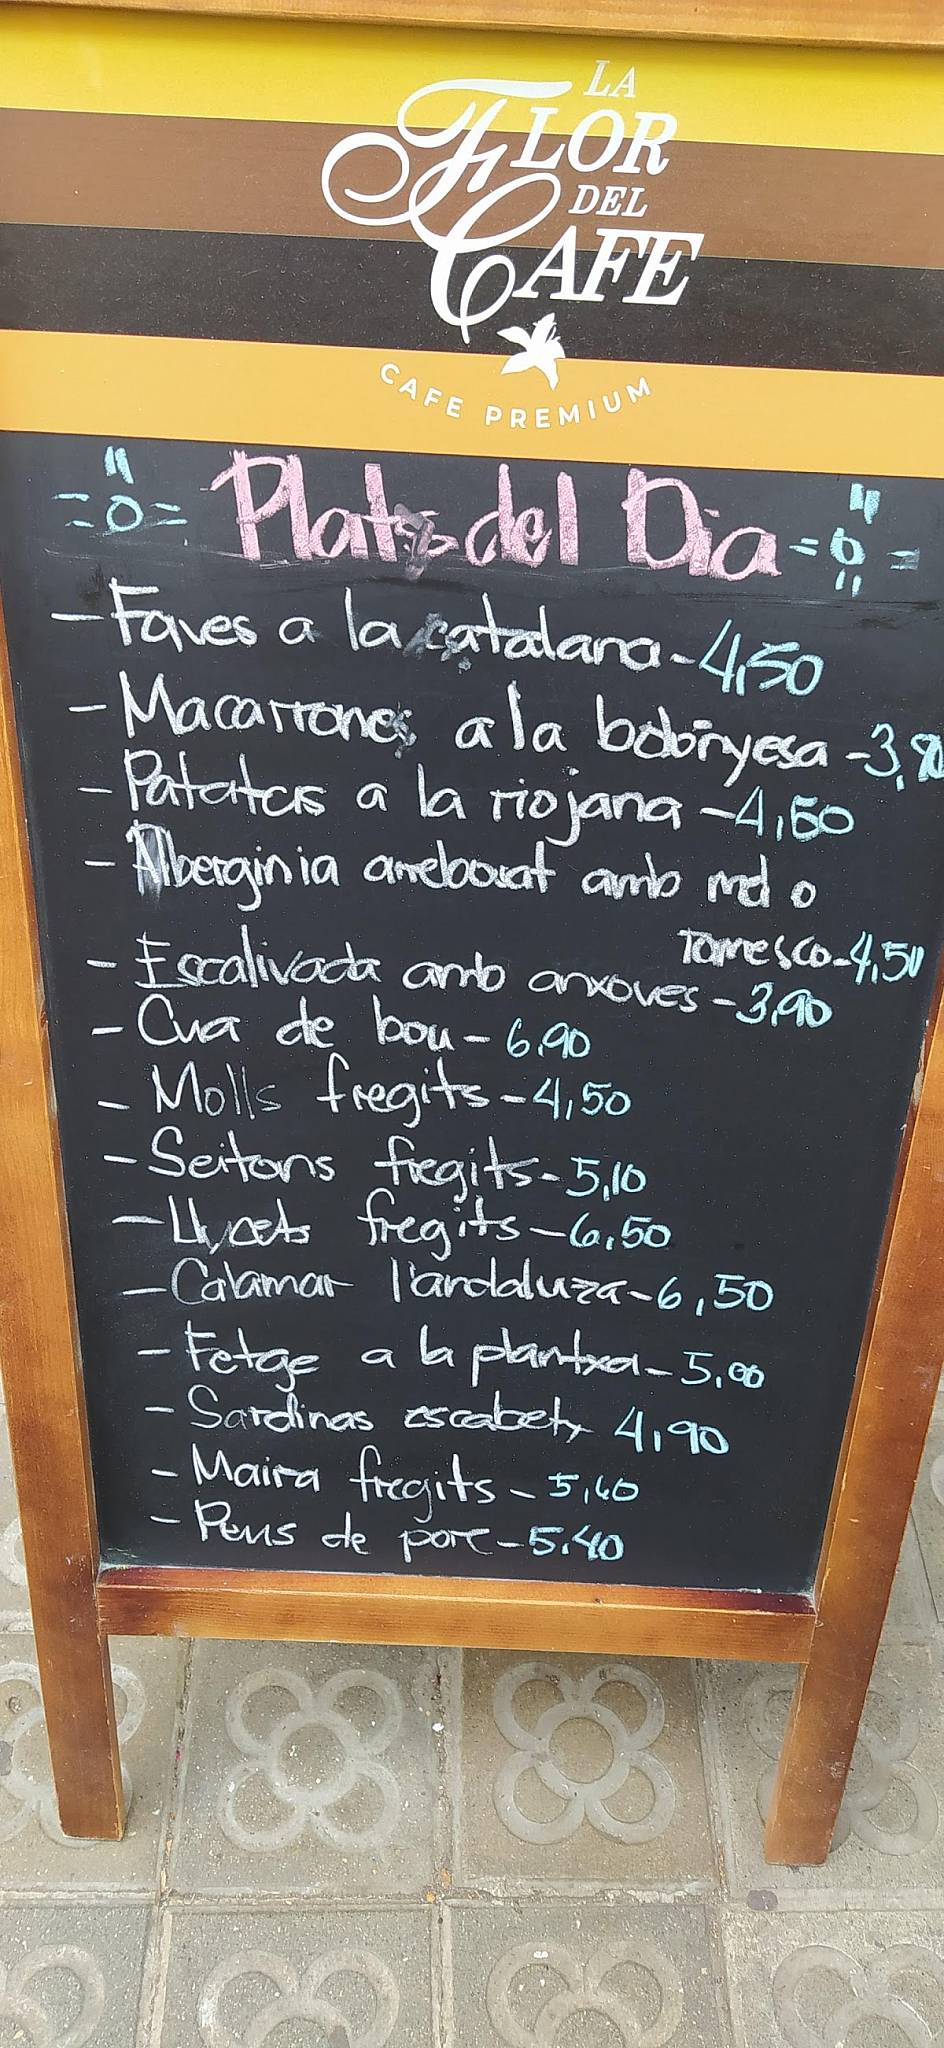 LA
FLOR
DEL
CAFE
CAFE PREMIUM
Plats del Dia
- Faves a la catalana - 4,50
- Macarrones a la bolonyesa - 3,90
- Patatas a la riojana - 4,50
- Alberginia arrebosat amb mel o
romesco - 4,50
- Escalivada amb anxoves - 3,90
- Cua de bou - 6,90
- Molls fregits - 4,50
- Seitons fregits - 5,10
- Lluçets fregits - 6,50
- Calamar l'andaluza - 6,50
- Fetge a la plantxa - 5,00
- Sardinas escabetx 4,90
- Maira fregits - 5,40
- Peus de porc - 5.40